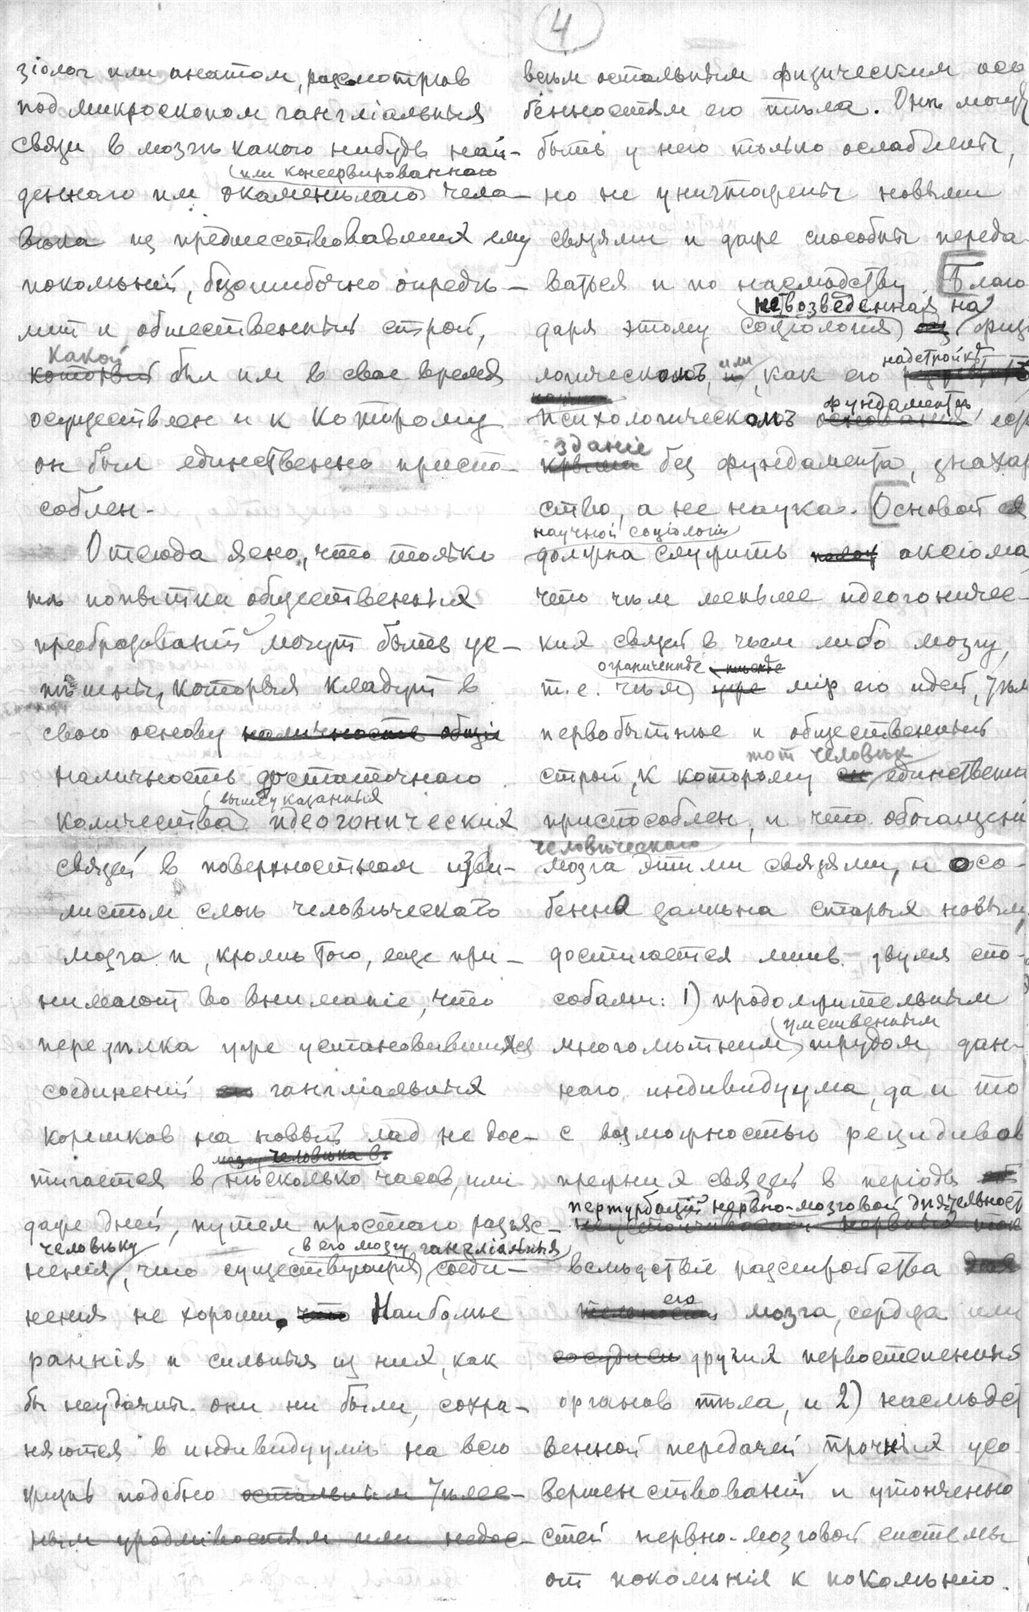 4
зіолог или анатом, разсмотрѣв
под микроскопом гангліальныя
связи в мозгѣ какого нибудь най-
(или консервированнаго
деннаго им окаменѣлаго чело-
вѣка из предшествовавших ему
поколѣній, безошибочно опредѣ-
лит и общественный строй,
какой
который был им в свое время
осуществлен и к которому
он был единственно приспо-
соблен.
Отсюда ясно, что только
тѣ попытки общественных
преобразованій могут быть ус-
пѣшны, которыя кладут в
свою основу наличность общія
наличность достаточнаго
(вышеуказанных
количества идеогонических
связей в поверхностном изви-
листом слоѣ человѣческаго
мозга и, кромѣ того, еще при-
нимают во вниманіе, что
передѣлка уже установившихся
соединеній гангліальных
корешков на новый лад не дос-
мозгу человѣка в
тигается в нѣсколько часов, или
даже дней, путем простого разъяс-
человѣку (в его мозгу гангліальныя
ненія, что существующія соеди-
ненія не хороши. что Наиболѣе
раннія и сильныя из них, как
бы неудачны они ни были, сохра-
няются в индивидуумѣ на всю
жизнь подобно остальным тѣлес-
ным уродливостям или недос-
всѣм остальным физическим осо
бенностям его тѣла. Онѣ могут
быть у него только ослаблены,
но не уничтожены новыми
связями и даже способны переда-
ваться и по наслѣдству. Благо
не возведенная на
даря этому соціология) физі
или надстройкѣ
логическомъ, и, как его
фундаментѣ,
психологическомъ основаніи, есть
зданіе
крыша без фундамента, знахар
ство, а не наука. Основой ея
научной соціологіи
должна служить аксіома,
что чѣм меньше идеогоничес-
ких связей в чьем либо мозгу,
ограниченнѣе
т.е. чѣм уже мір его идей, тѣм
первобытнѣе и общественный
тот человѣк
строй, к которому он единственно
приспособлен, и что обогащеніе
человѣческаго
мозга этими связями, и осо-
бенно замѣна старых новыми,
достигается лишь двумя спо-
собами: 1) продолжительным
(умственным
многолѣтним трудом дан-
наго индивидуума, да и то
с возможностью рецидивов
прежних связей в періоды
пертурбацій нервно-мозговой дѣятельност
вслѣдствіе разстройства
его
мозга, сердца или
сосудист других первостепенных
органов тѣла, и 2) наслѣдст
венной передачей прочных усо-
вершенствованій и утонченно
стей нервно-мозговой системы
от поколѣнія к поколѣнію.